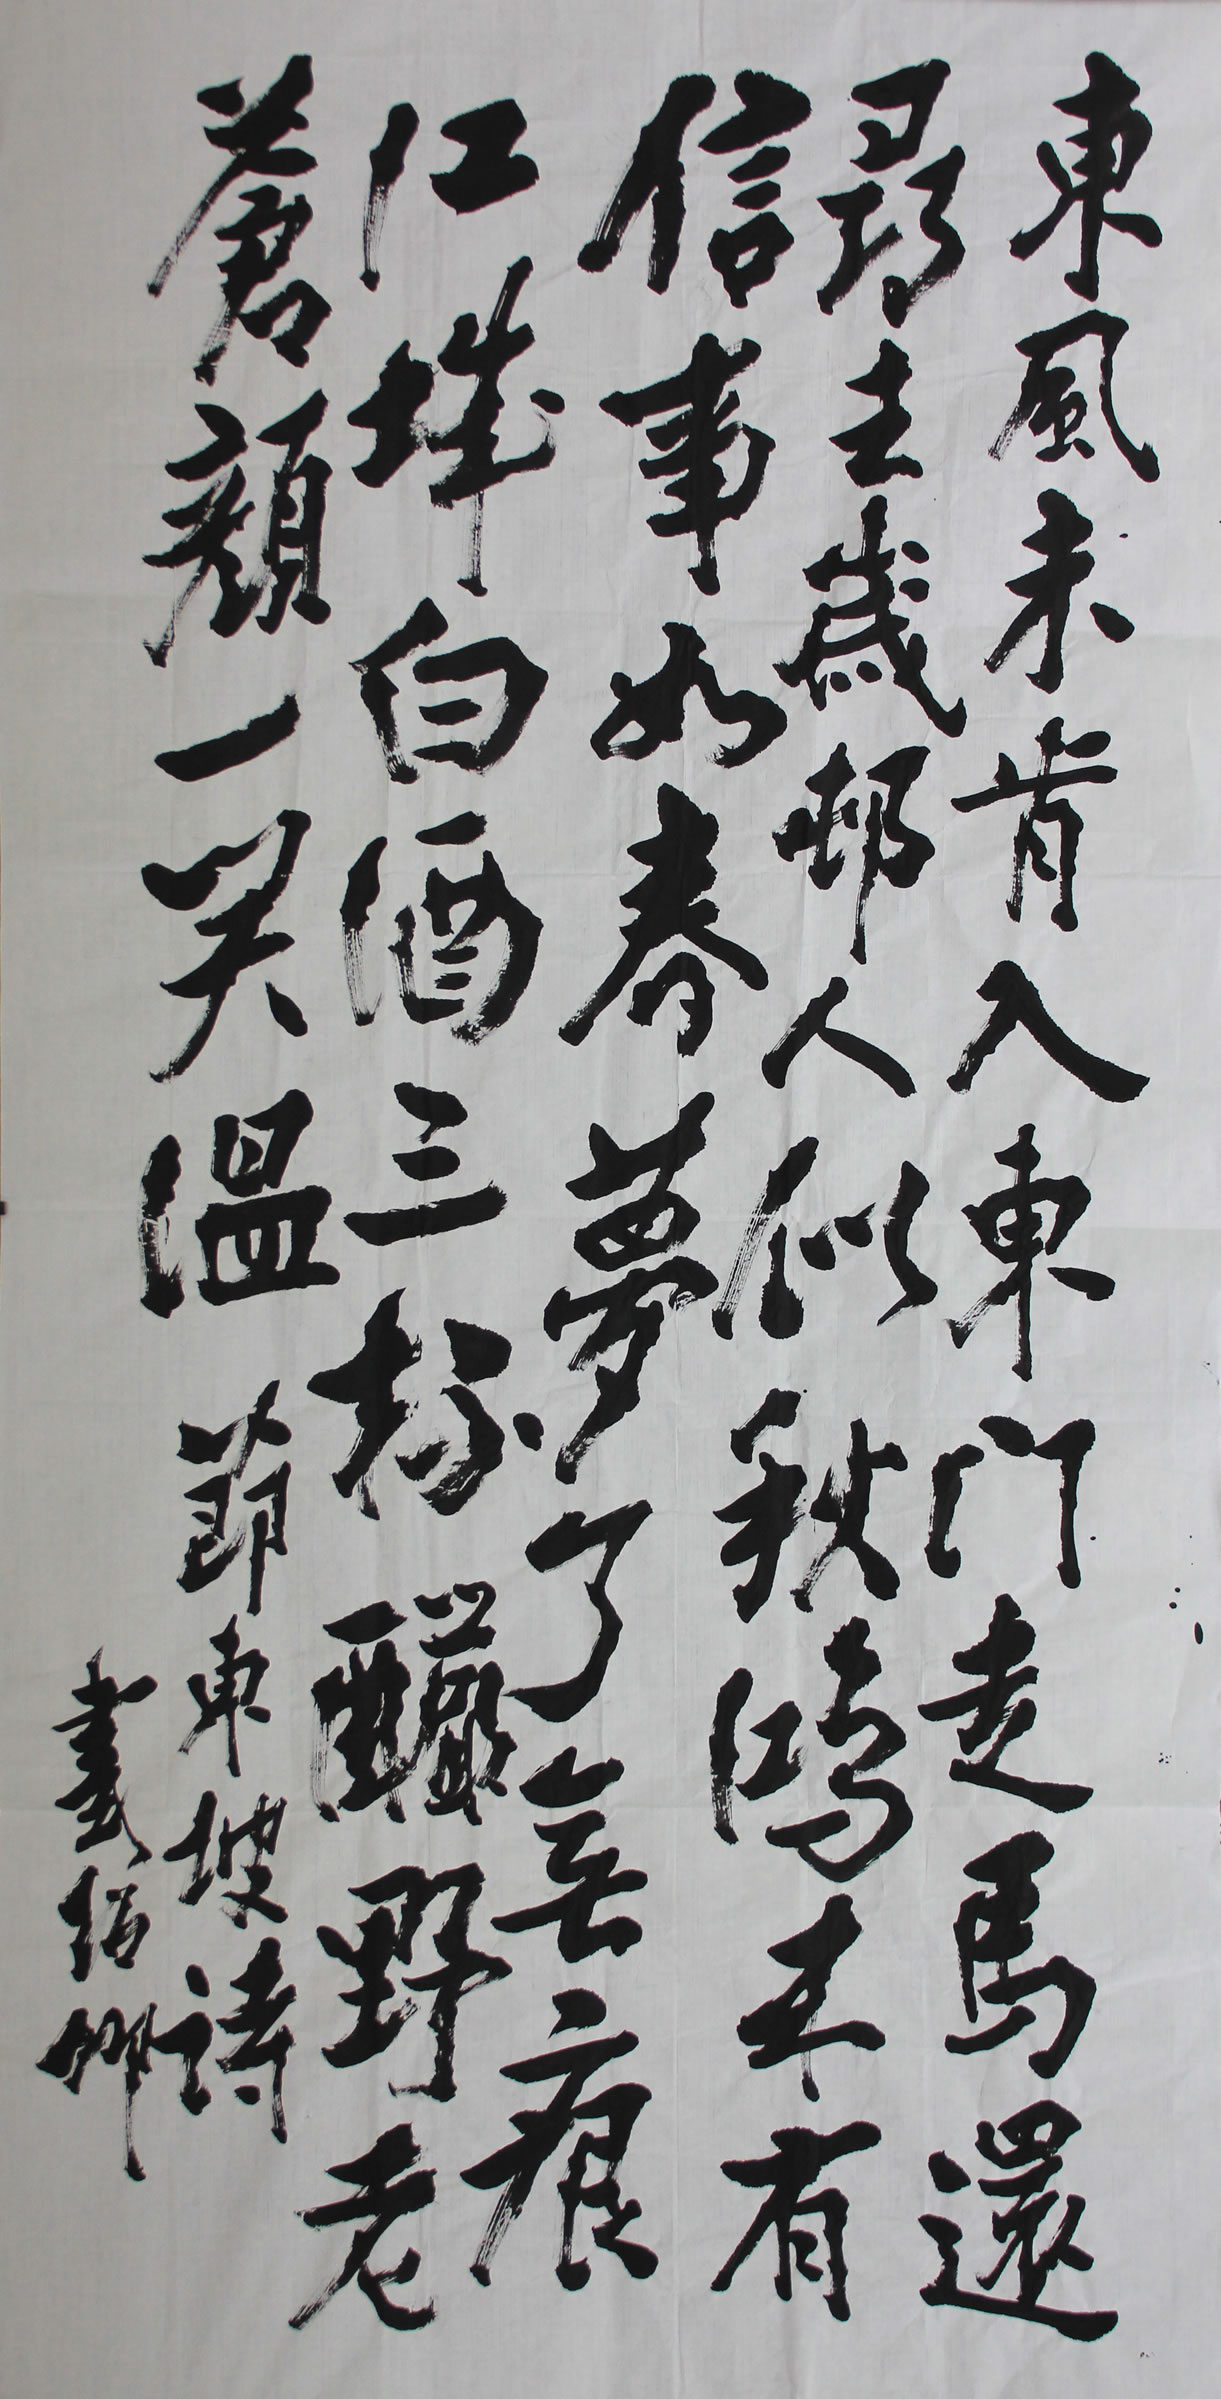 東風未肯入東門走馬還
尋去歲邨人似秋鴻來有
信事如春夢了無痕
江城白酒三杯釅野老
蒼顏一笑溫 節東坡詩